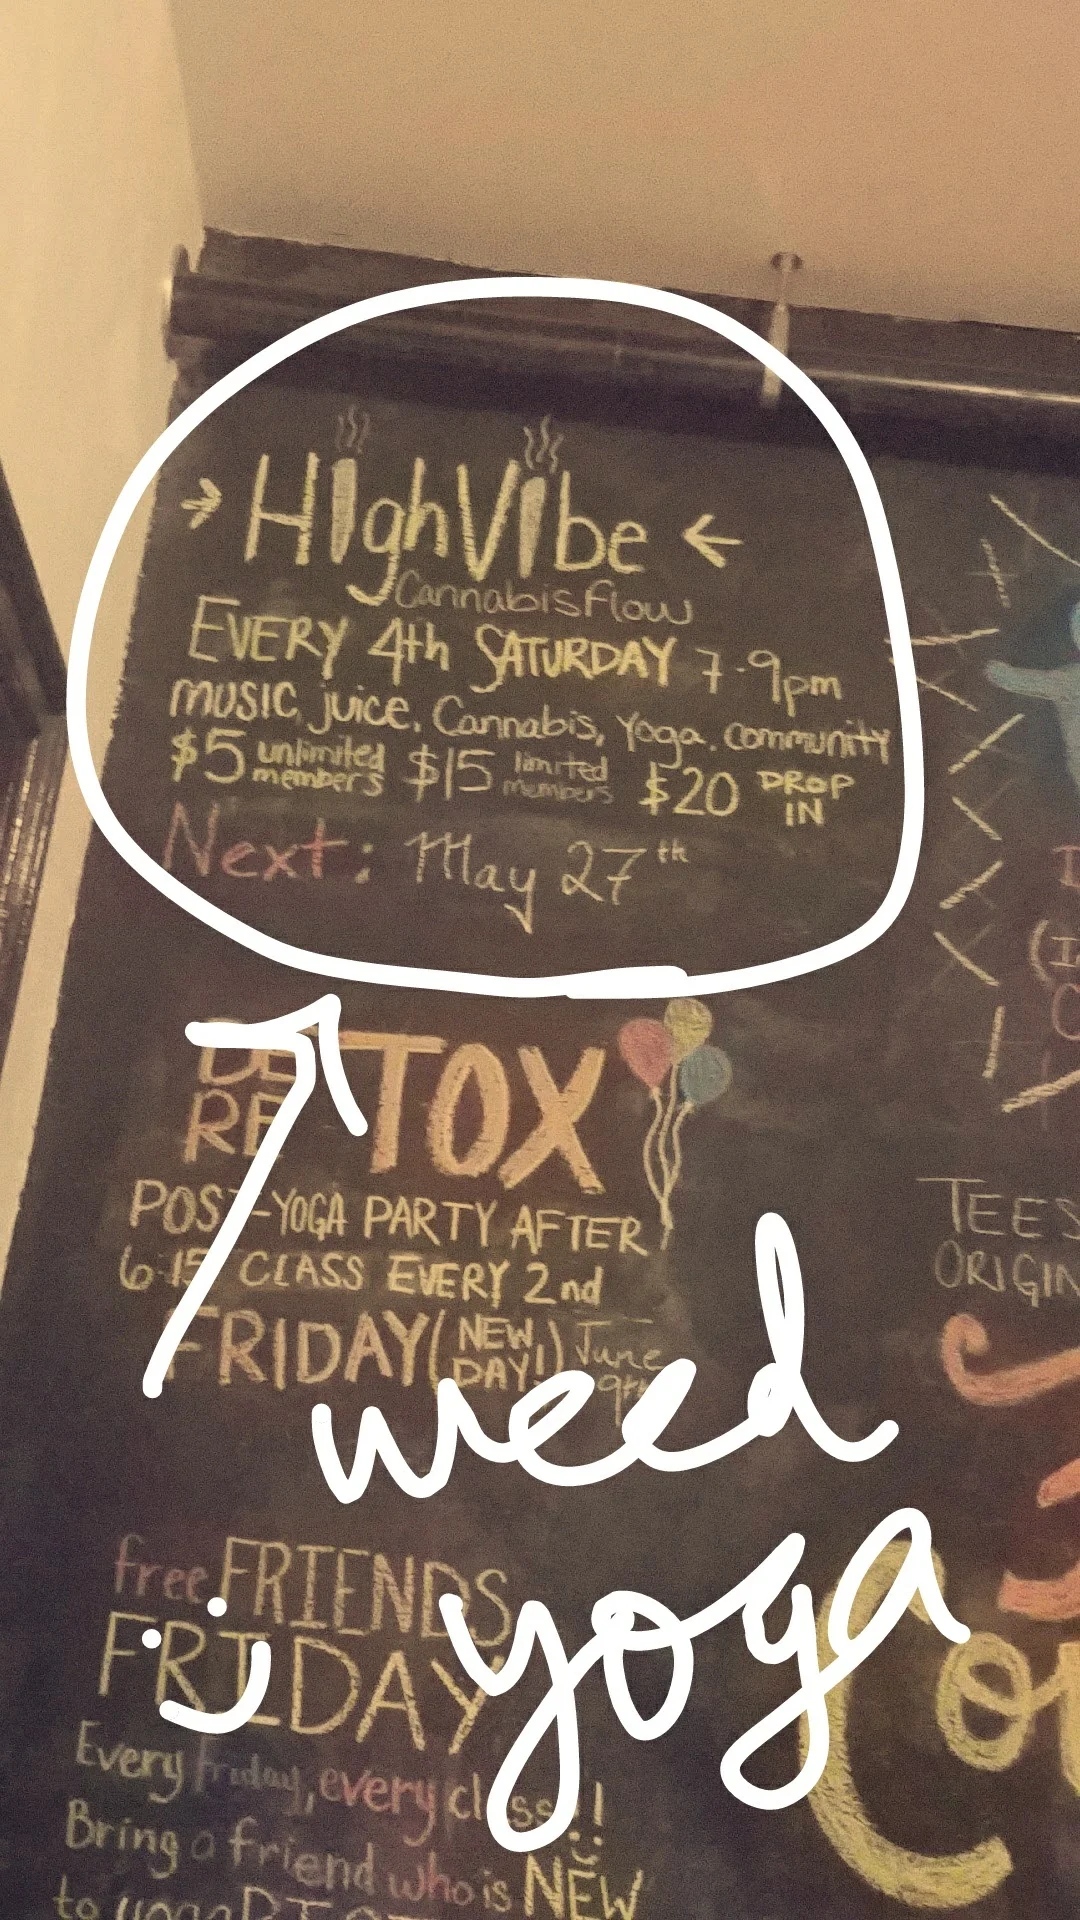 HighVibe
Cannabis Flow
EVERY 4th SATURDAY 7-9pm
music, juice, Cannabis, Yoga, community
$5 unlimited members $15 limited members $20 DROP IN
Next: May 27th
DE
RE TOX
POST-YOGA PARTY AFTER
6:15 CLASS EVERY 2nd
FRIDAY (NEW DAY!) June 9th
weed
yoga
free FRIENDS
FRIDAY
Every Friday, every class!!
Bring a friend who is NEW
to
TEES
ORIGIN